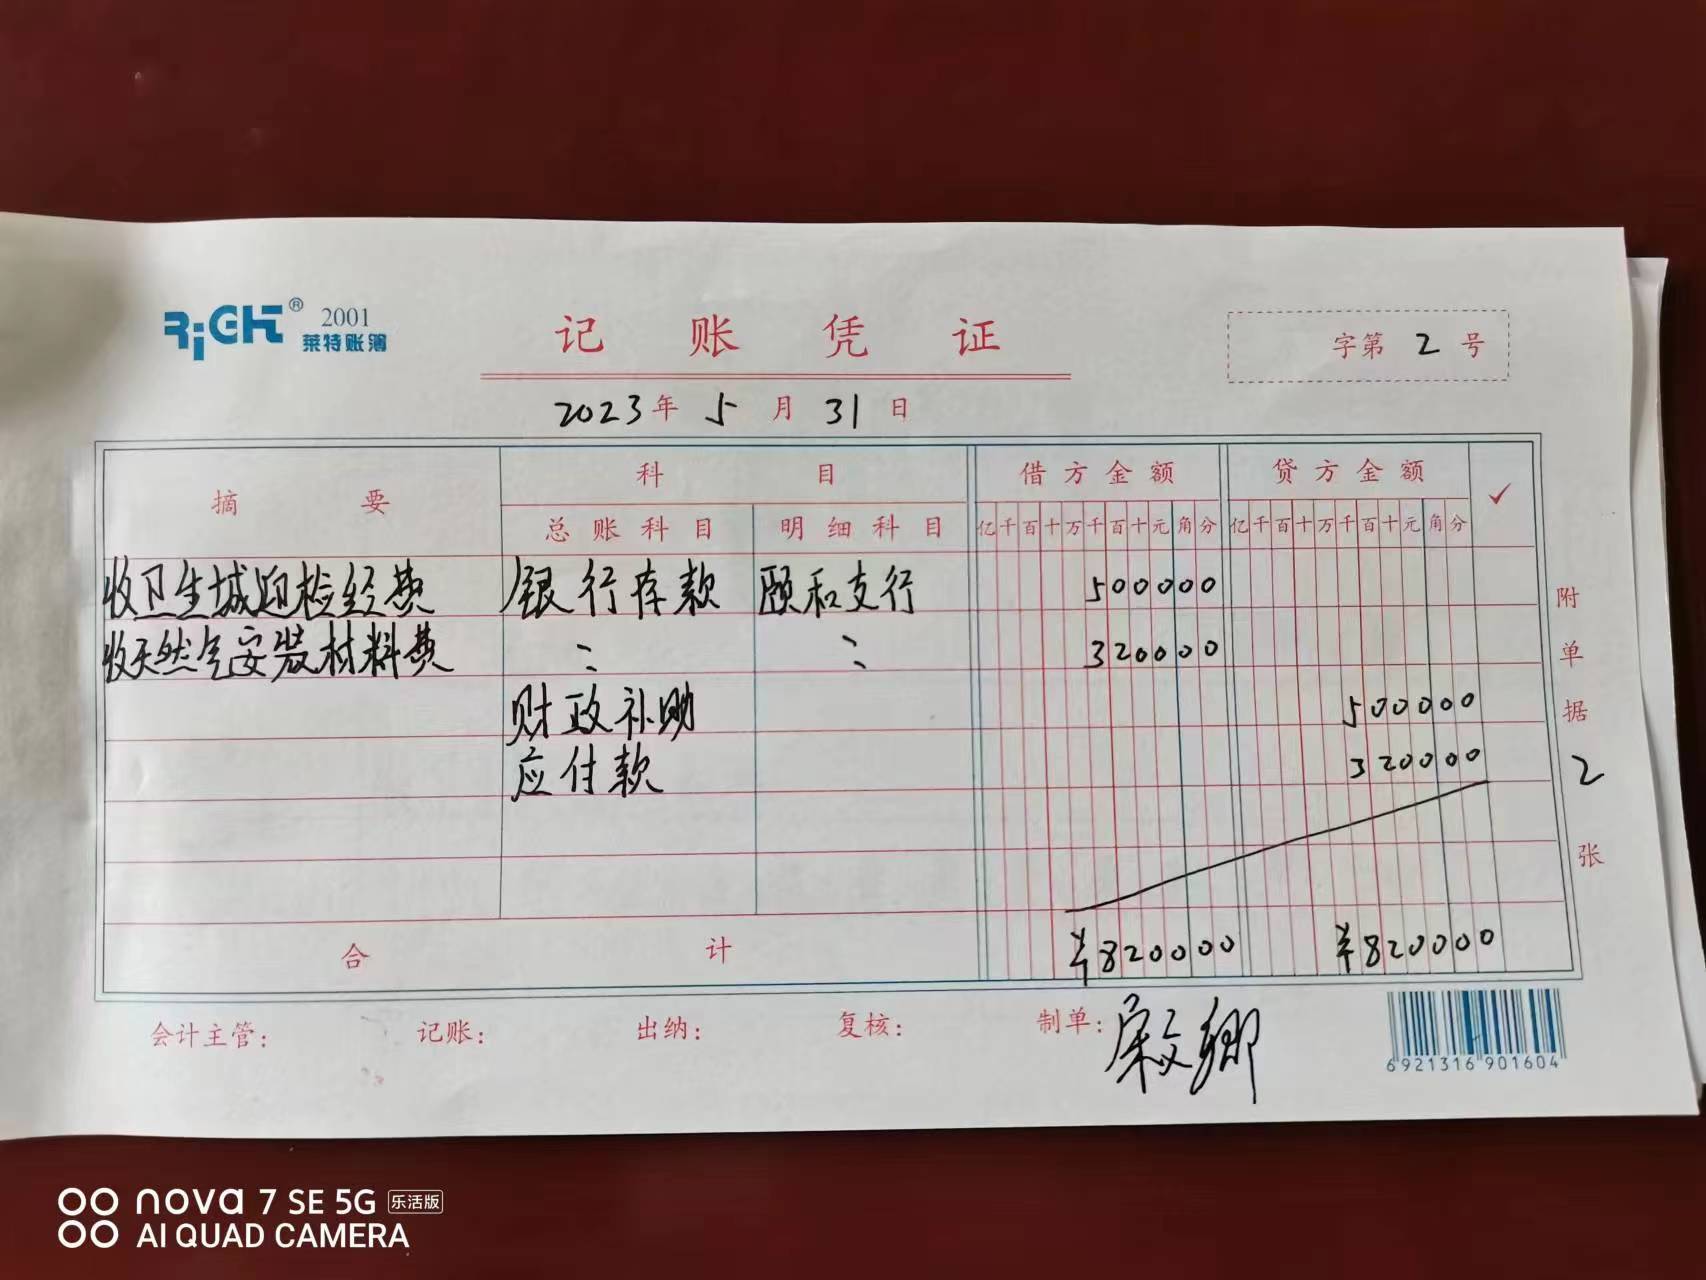 RiGHT® 2001
莱特账簿
记账凭证
字第 2 号
2023年 5月 31日
摘要 科目 借方金额 贷方金额 ✓
总账科目 明细科目 亿千百十万千百十元角分 亿千百十万千百十元角分
收卫生城迎检经费 银行存款 颐和支行 500000
收天然气安装材料费 〃 〃 320000
财政补助 500000
应付款 320000
合计 ¥820000 ¥820000
附单据 2 张
会计主管: 记账: 出纳: 复核: 制单:
6921316901604
nova 7 SE 5G 乐活版
AI QUAD CAMERA